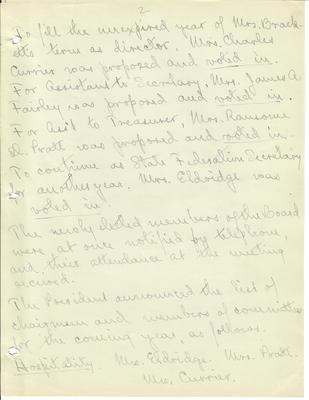 2
To fill the unexpired year of Mrs. Brack-
etts term as director, Mrs. Charles
Currier was proposed and voted in.
For Assistant to Secretary, Mrs. James A
Farley was proposed and voted in.
For Ass't to Treasurer, Mrs. Ransome
D. Pratt was proposed and voted in.
To continue as State Federation Secretary
for another year. Mrs. Eldridge was
voted in.
The newly elected members of the Board
were at once notified by telephone,
and, their attendance at the meeting
secured.
The President announced the list of
chairmen and members of committees
for the coming year, as follows.
Hospitality Mrs. Eldridge. Mrs. Pratt.
Mrs. Currier.